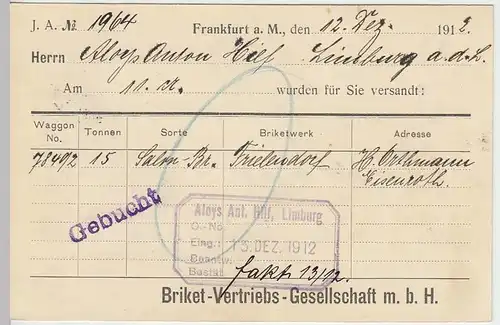 J. A. № 1964 Frankfurt a. M., den 12. Dez. 1912.
Herrn Aloys Anton Hilf, Limburg a. d. L.
Am 11. ds. wurden für Sie versandt:
Waggon No. Tonnen Sorte Briketwerk Adresse
78492 15 Salon-Br. Frielendorf H. Orthmann
Eisenroth.
Gebucht
Aloys Ant. Hilf, Limburg
G.-No.
Eing.: 13. DEZ. 1912
Beantw.
Bestät.
fakt. 13/12.
Briket-Vertriebs-Gesellschaft m. b. H.